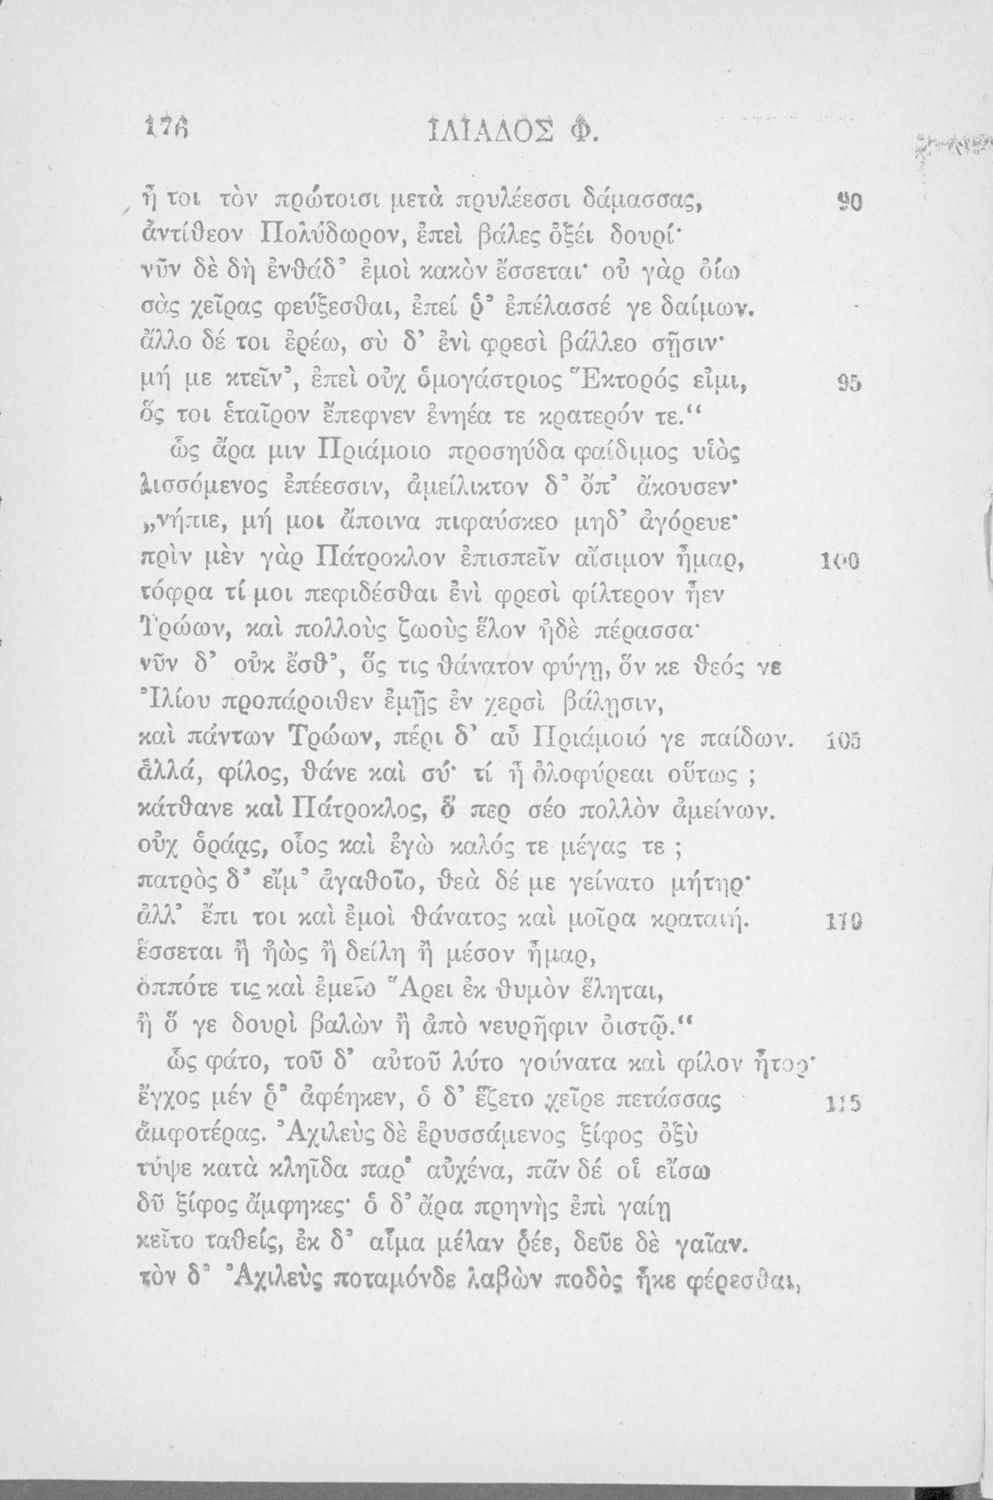 176 ΙΛΙΑΔΟΣ Φ.
ἦ τοι τὸν πρώτοισι μετὰ πρυλέεσσι δάμασσας, 90
ἀντίθεον Πολύδωρον, ἐπεὶ βάλες ὀξέι δουρί·
νῦν δὲ δὴ ἐνθάδ’ ἐμοὶ κακὸν ἔσσεται· οὐ γὰρ ὀίω
σὰς χεῖρας φεύξεσθαι, ἐπεί ῥ’ ἐπέλασσέ γε δαίμων.
ἄλλο δέ τοι ἐρέω, σὺ δ’ ἐνὶ φρεσὶ βάλλεο σῇσιν·
μή με κτεῖν’, ἐπεὶ οὐχ ὁμογάστριος Ἕκτορός εἰμι, 95
ὅς τοι ἑταῖρον ἔπεφνεν ἐνηέα τε κρατερόν τε.“
ὣς ἄρα μιν Πριάμοιο προσηύδα φαίδιμος υἱὸς
λισσόμενος ἐπέεσσιν, ἀμείλικτον δ’ ὄπ’ ἄκουσεν·
„νήπιε, μή μοι ἄποινα πιφαύσκεο μηδ’ ἀγόρευε·
πρὶν μὲν γὰρ Πάτροκλον ἐπισπεῖν αἴσιμον ἦμαρ, 100
τόφρα τί μοι πεφιδέσθαι ἐνὶ φρεσὶ φίλτερον ἦεν
Τρώων, καὶ πολλοὺς ζωοὺς ἕλον ἠδὲ πέρασσα·
νῦν δ’ οὐκ ἔσθ’, ὅς τις θάνατον φύγῃ, ὅν κε θεός γε
Ἰλίου προπάροιθεν ἐμῇς ἐν χερσὶ βάλῃσιν,
καὶ πάντων Τρώων, πέρι δ’ αὖ Πριάμοιό γε παίδων. 105
ἀλλά, φίλος, θάνε καὶ σύ· τί ἦ ὀλοφύρεαι οὕτως ;
κάτθανε καὶ Πάτροκλος, ὅ περ σέο πολλὸν ἀμείνων.
οὐχ ὁράᾳς, οἷος καὶ ἐγὼ καλός τε μέγας τε ;
πατρὸς δ’ εἴμ’ ἀγαθοῖο, θεὰ δέ με γείνατο μήτηρ·
ἀλλ’ ἔπι τοι καὶ ἐμοὶ θάνατος καὶ μοῖρα κραταιή. 110
ἔσσεται ἢ ἠὼς ἢ δείλη ἢ μέσον ἦμαρ,
ὁππότε τις καὶ ἐμεῖο Ἄρει ἐκ θυμὸν ἕληται,
ἢ ὅ γε δουρὶ βαλὼν ἢ ἀπὸ νευρῆφιν ὀιστῷ.“
ὣς φάτο, τοῦ δ’ αὐτοῦ λύτο γούνατα καὶ φίλον ἦτορ·
ἔγχος μέν ῥ’ ἀφέηκεν, ὁ δ’ ἕζετο χεῖρε πετάσσας 115
ἀμφοτέρας. Ἀχιλεὺς δὲ ἐρυσσάμενος ξίφος ὀξὺ
τύψε κατὰ κληῖδα παρ’ αὐχένα, πᾶν δέ οἱ εἴσω
δῦ ξίφος ἄμφηκες· ὁ δ’ ἄρα πρηνὴς ἐπὶ γαίῃ
κεῖτο ταθείς, ἐκ δ’ αἷμα μέλαν ῥέε, δεῦε δὲ γαῖαν.
τὸν δ’ Ἀχιλεὺς ποταμόνδε λαβὼν ποδὸς ἧκε φέρεσθαι,